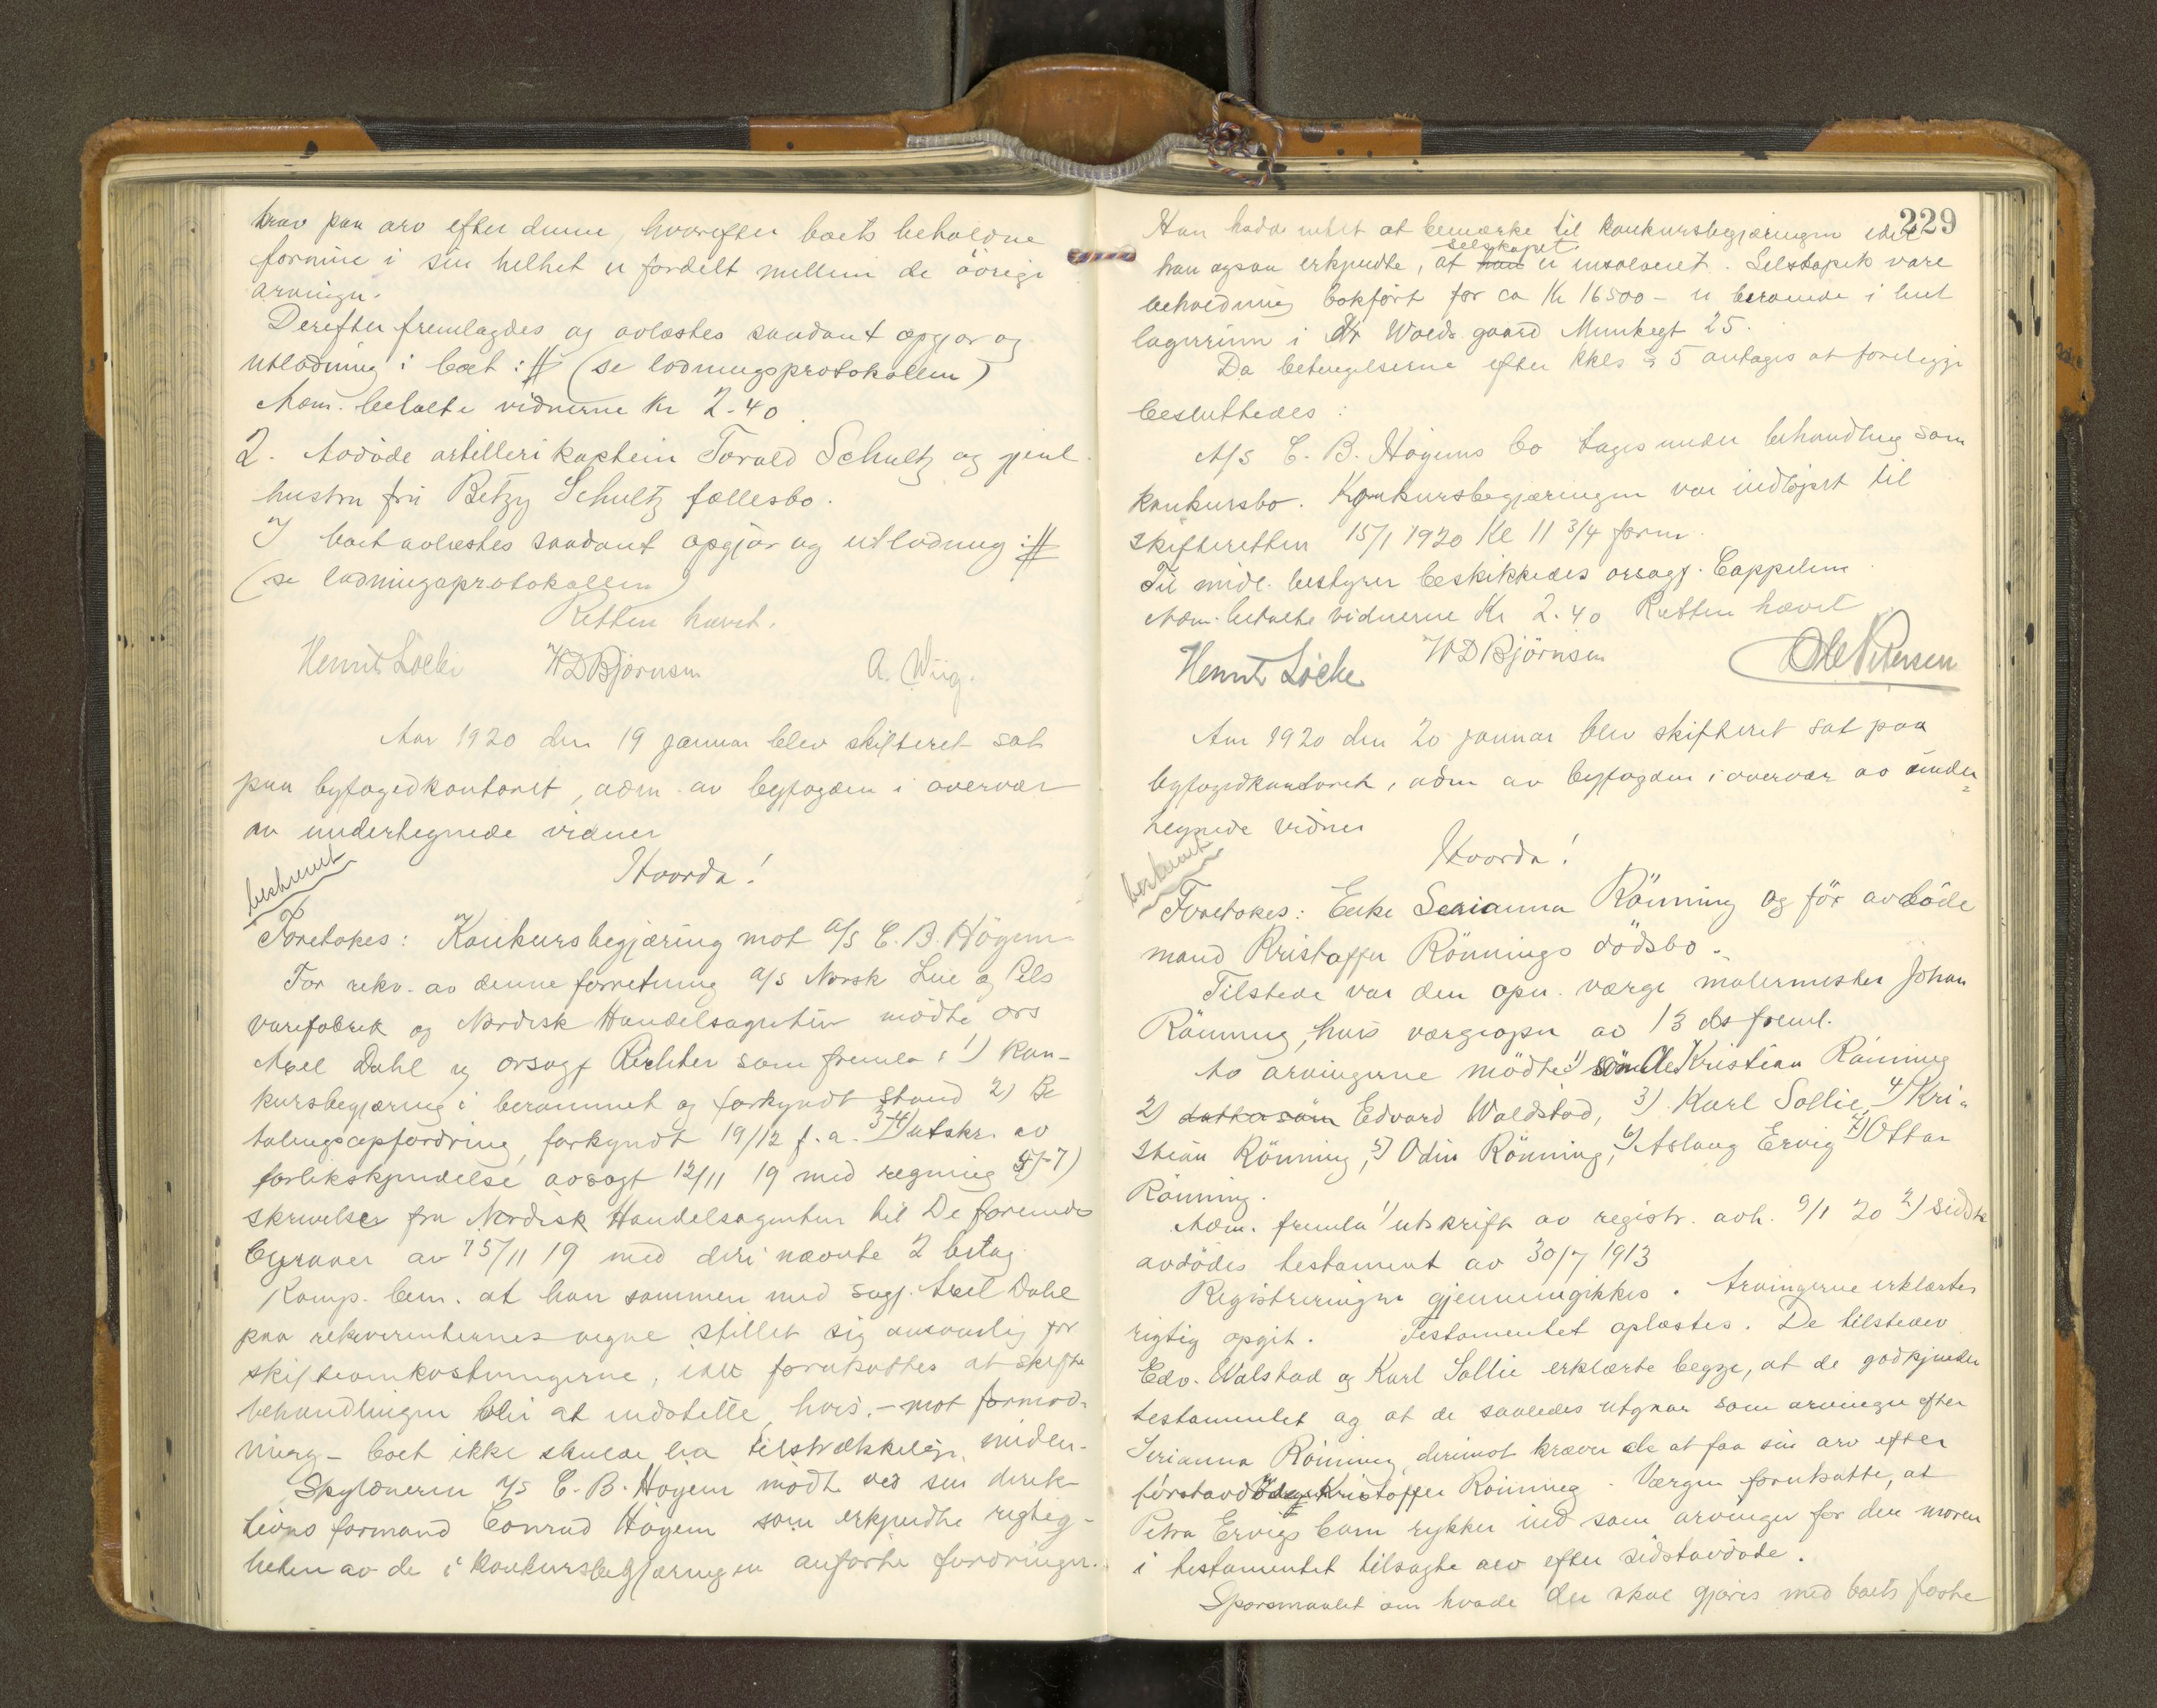 krav paa arv efter denne, hvorefter boets beholdne
formue i sin helhet er fordelt mellem de övrige
arvinger.
Derefter fremlagdes og avlæstes saadant opgjör og
utlodning i boet :╫ (se lodningsprotokollen)
Adm. betalte vidnerne Kr 2-40
2. Avdöde artillerikaptein Torald Schultz og gjenl.
hustru fru Betzy Schultz fællesbo.
I boet avlæstes saadant opgjör og utlodning :╫
(se lodningsprotokollen)
Retten hævet.
Henrik Löcke WDBjörnsen A. Wiig.
Aar 1920 den 19 januar blev skifteret sat
paa byfogedkontoret, adm. av byfogden i overvær
av undertegnede vidner
Hvorda!
beskrevet
Foretokes: Konkursbegjæring mot A/S C. B. Högem
For rekv. av denne forretning A/S Norsk Lue og Pels
varefabrik og Nordisk Handelsagentur mödte ors
Axel Dahl og orsagf Richter som fremla: 1) Kon-
kursbegjæring i berammet og forkyndt stand 2) Be
talingsopfordring, forkyndt 19/12 f. a. 3-4) utskr. av
forlikskjendelse avsagt 12/11 19 med regning 5)-7)
skrivelser fra Nordisk Handelsagentur til De forenede
Byraaer av 15/11 19 med deri nævnte 2 bilag.
Komp. bem. at han sammen med sagf. Axel Dahl
paa rekvirenternes vegne stillet sig ansvarlig for
skifteomkostningerne, idet forutsattes at skifte
behandlingen blir at indstille, hvis - mot formod-
ning - boet ikke skulde ha tilstrækkelige midler.
Skyldneren A/S C. B. Högem mödte ved sin direk-
tions formand Conrad Högem som erkjendte rigtig-
heten av de i konkursbegjæringen anförte fordringer.
229
Han hadde intet at bemærke til konkursbegjæringen idet
selskapet
han ogsaa erkjendte, at han er insolvent. Selskapets vare
beholdning bokfört for ca Kr 16500 - er beroende i leiet
lagerrum i Dr Wolds gaard Munkegt 25.
Da betingelserne efter Kkls § 5 antages at foreligge
besluttedes:
A/S C. B. Högems bo tages under behandling som
konkursbo. Konkursbegjæringen var indlöpet til
skifteretten 15/1 1920 Kl 11 3/4 form.
Til midl. bestyrer beskikkedes orsagf. Cappelen.
Adm. betalte vidnerne Kr 2.40 Retten hævet
Henrik Löcke WDBjörnsen Ole Petersen
Aar 1920 den 20 januar blev skifteret sat paa
byfogedkontoret, adm av byfogden i overvær av under
tegnede vidner
Hvorda!
beskrevet
Foretokes: Enke Serianna Rönning og för avdöde
mand Kristoffer Rönnings dödsbo.
Tilstede var den opn. værge malermester Johan
Rönning, hvis værgeopn av 13 ds freml.
Av arvingerne mödte 1) sön Ole Kristian Rönning
2) dattersön Edvard Waldstad, 3) Karl Sollie, 4) Kri-
stian Rönning, 5) Odin Rönning, 6) Aslaug Ervig 7) Ottar
Rönning.
Adm. fremla 1) utskrift av registr. avh. 9/1 20 2) sidst
avdödes testament av 30/7 1913
Registreringen gjennemgikkes. Arvingerne erklærtes
rigtig opgit. Testamentet oplæstes. De tilstedev
Edv. Walstad og Karl Sollie erklærte begge, at de godkjender
testamentet og at de saaledes utgaar som arvinger efter
Serianna Rönning, derimot kræver de at faa sin arv efter
förstavdöde Kristoffer Rönning. Værgen forutsatte, at
Petra Ervigs barn rykker ind som arvinger for den moren
i testamentet tilsagte arv efter sidstavdöde.
Spörsmaalet om hvade der skal gjöres med boets faste